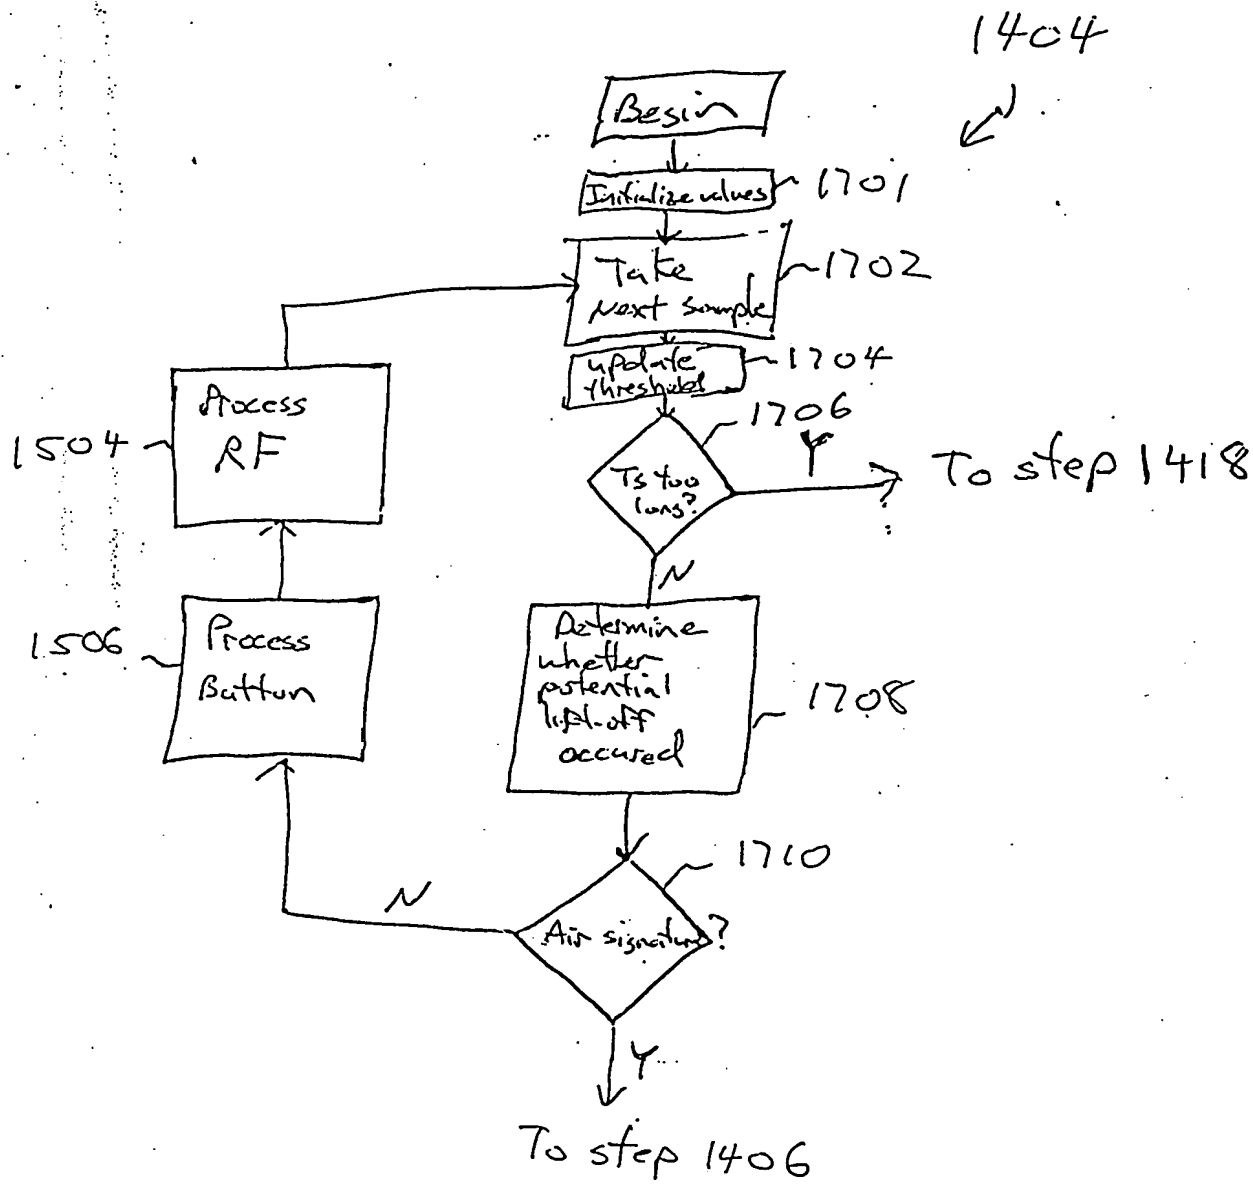 1404
Begin
Initialize values
1701
Take
Next sample
1702
update
thresholds
1704
1706
Ts too
long?
Y
To step 1418
N
Process
RF
1504
Process
Button
1506
Determine
whether
potential
lift-off
occured
1708
1710
Air signature?
N
Y
To step 1406